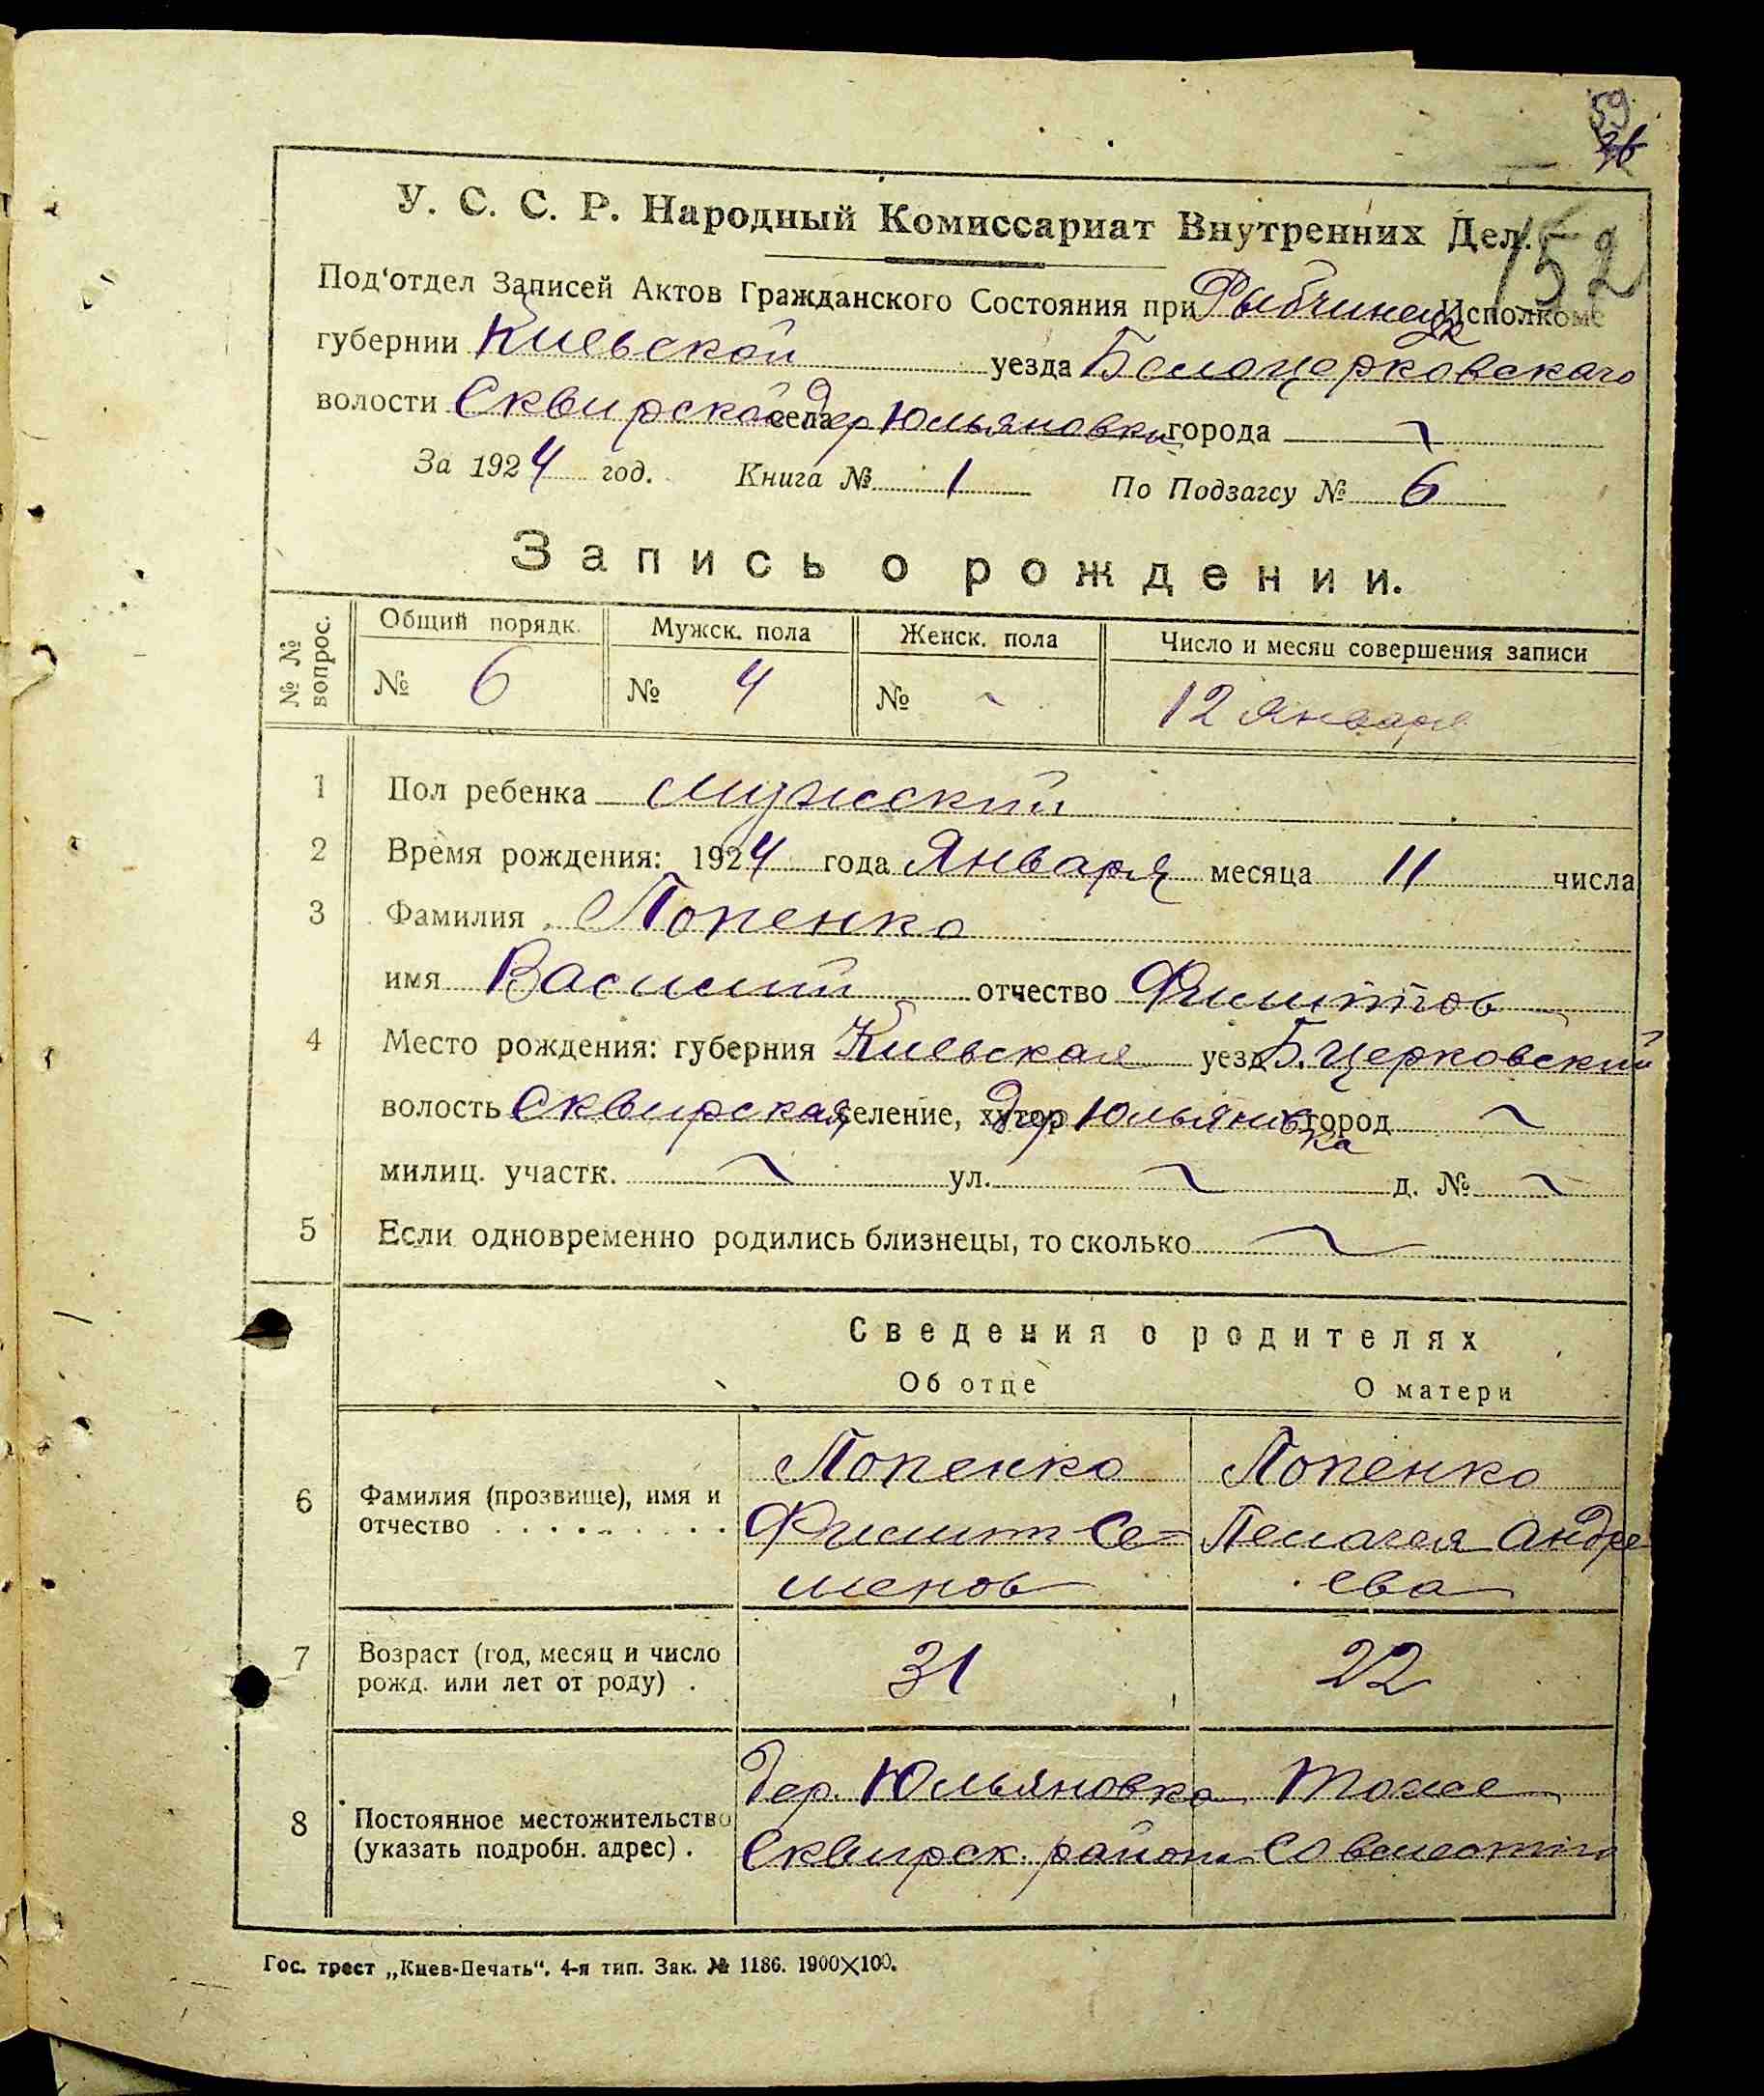 59
36
У. С. С. Р. Народный Комиссариат Внутренних Дел.
152
Под'отдел Записей Актов Гражданского Состояния при Рыбчинецк Исполкоме
губернии Киевской уезда Белоцерковскаго
волости Сквирской села дер Юльяновки города ~
За 1924 год. Книга № 1 По Подзагсу № 6
Запись о рождении.
№ № вопрос.
Общий порядк. Мужск. пола Женск. пола Число и месяц совершения записи
№ 6 № 4 № ~ 12 Января
1 Пол ребенка мужеский
2 Время рождения: 1924 года Января месяца 11 числа
3 Фамилия Попенко
имя Василий отчество Филиппов
4 Место рождения: губерния Киевская уезд Б. Церковский
волость Сквирская селение, хутор дер Юльяновка город ~
милиц. участк. ~ ул. ~ д. № ~
5 Если одновременно родились близнецы, то сколько ~
Сведения о родителях
Об отце О матери
6 Фамилия (прозвище), имя и отчество . . . . . . . . .
Попенко
Филипп Се=
менов
Попенко
Пелагея Андре
ева
7 Возраст (год, месяц и число рожд. или лет от роду) .
31 22
8 Постоянное местожительство (указать подробн. адрес) .
дер. Юльяновка
Сквирск. района
тоже
совместно
Гос. трест „Киев-Печать“. 4-я тип. Зак. № 1186. 1900×100.